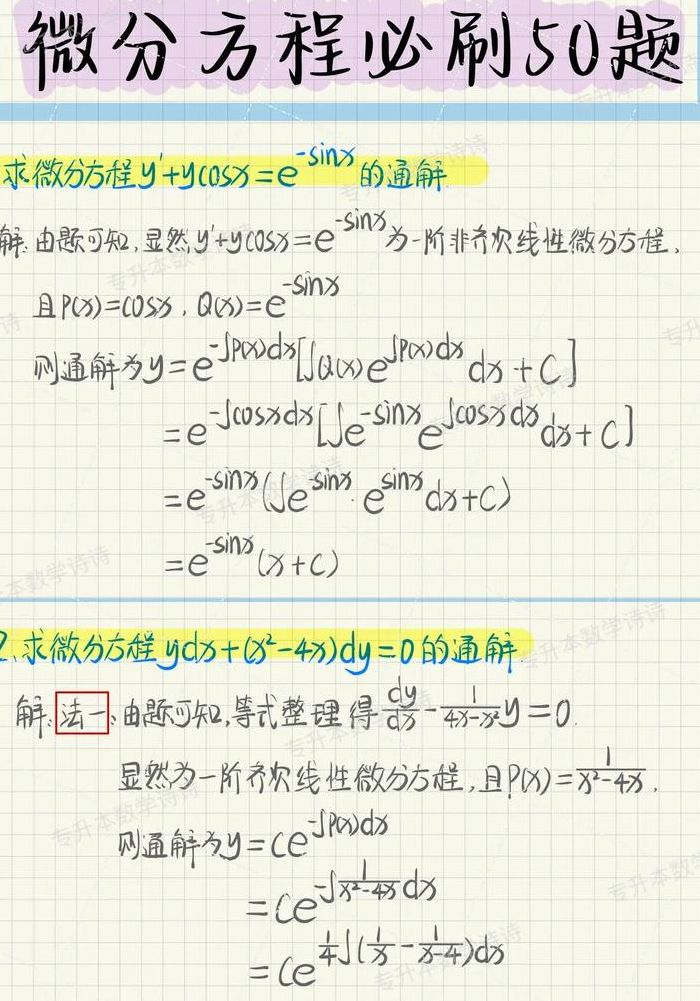 微分方程必刷50题
求微分方程y'+ycosx=e^{-sinx}的通解
解:由题可知,显然y'+ycosx=e^{-sinx}为一阶非齐次线性微分方程,
且P(x)=cosx,Q(x)=e^{-sinx}
则通解为y=e^{-∫P(x)dx}[∫Q(x)e^{∫P(x)dx}dx+C]
=e^{-∫cosxdx}[∫e^{-sinx}e^{∫cosxdx}dx+C]
=e^{-sinx}(∫e^{-sinx}·e^{sinx}dx+C)
=e^{-sinx}(x+C)
2.求微分方程ydx+(x²-4x)dy=0的通解
解:法一:由题可知,等式整理得\frac{dy}{dx}-\frac{1}{4x-x²}y=0.
显然为一阶齐次线性微分方程,且P(x)=\frac{1}{x²-4x},
则通解为y=Ce^{-∫P(x)dx}
=Ce^{-∫\frac{1}{x²-4x}dx}
=Ce^{\frac{1}{4}∫(\frac{1}{x}-\frac{1}{x-4})dx}
专升本数学诗诗